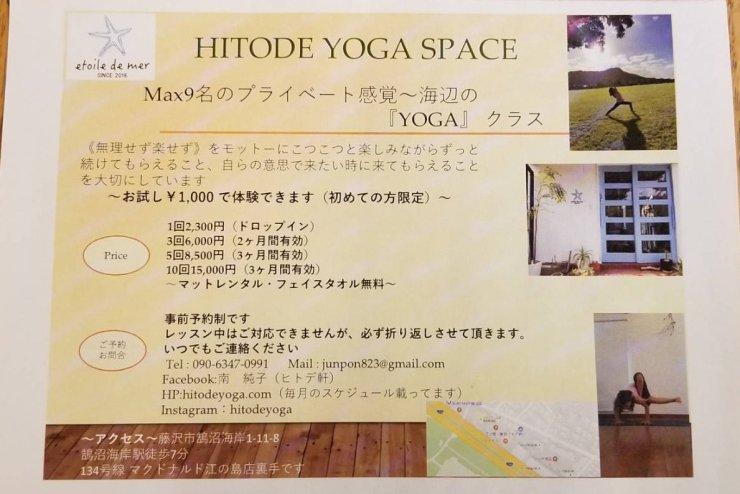 etoile de mer
SINCE 2016
HITODE YOGA SPACE
Max9名のプライベート感覚～海辺の
『YOGA』 クラス
《無理せず楽せず》をモットーにこつこつと楽しみながらずっと
続けてもらえること、自らの意思で来たい時に来てもらえること
を大切にしています
～お試し￥1,000で体験できます（初めての方限定）～
Price
1回2,300円（ドロップイン）
3回6,000円（2ヶ月間有効）
5回8,500円（3ヶ月間有効）
10回15,000円（3ヶ月間有効）
～マットレンタル・フェイスタオル無料～
ご予約
お問合
事前予約制です
レッスン中はご対応できませんが、必ず折り返しさせて頂きます。
いつでもご連絡ください
Tel : 090-6347-0991 Mail : junpon823@gmail.com
Facebook:南 純子（ヒトデ軒）
HP:hitodeyoga.com（毎月のスケジュール載ってます）
Instagram：hitodeyoga
～アクセス～藤沢市鵠沼海岸1-11-8
鵠沼海岸駅徒歩7分
134号線 マクドナルド江の島店裏手です